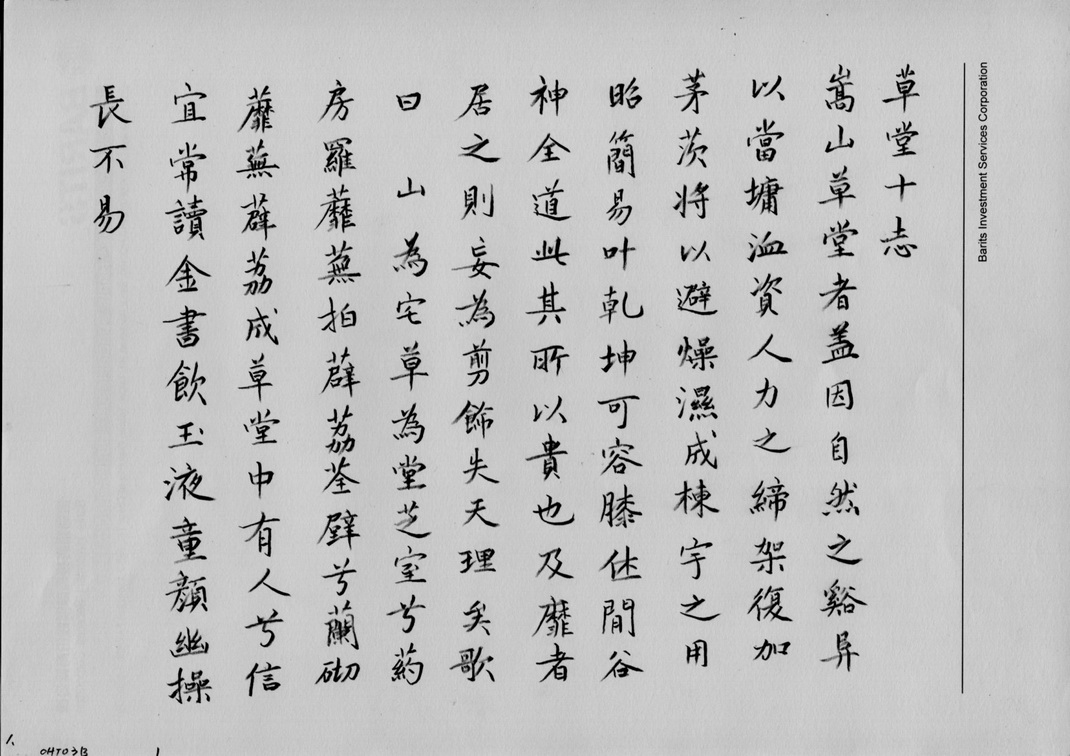 草堂十志
嵩山草堂者盖因自然之谿阜
以當墉洫資人力之締架復加
茅茨將以避燥濕成棟宇之用
昭簡易叶乾坤可容膝休閒谷
神全道此其所以貴也及靡者
居之則妄為剪飾失天理矣歌
曰 山為宅草為堂芝室兮药
房羅蘼蕪拍薜荔荃壁兮蘭砌
蘼蕪薜荔成草堂中有人兮信
宜常讀金書飲玉液童顏幽操
長不易
Barits Investment Services Corporation
OHT03B
1